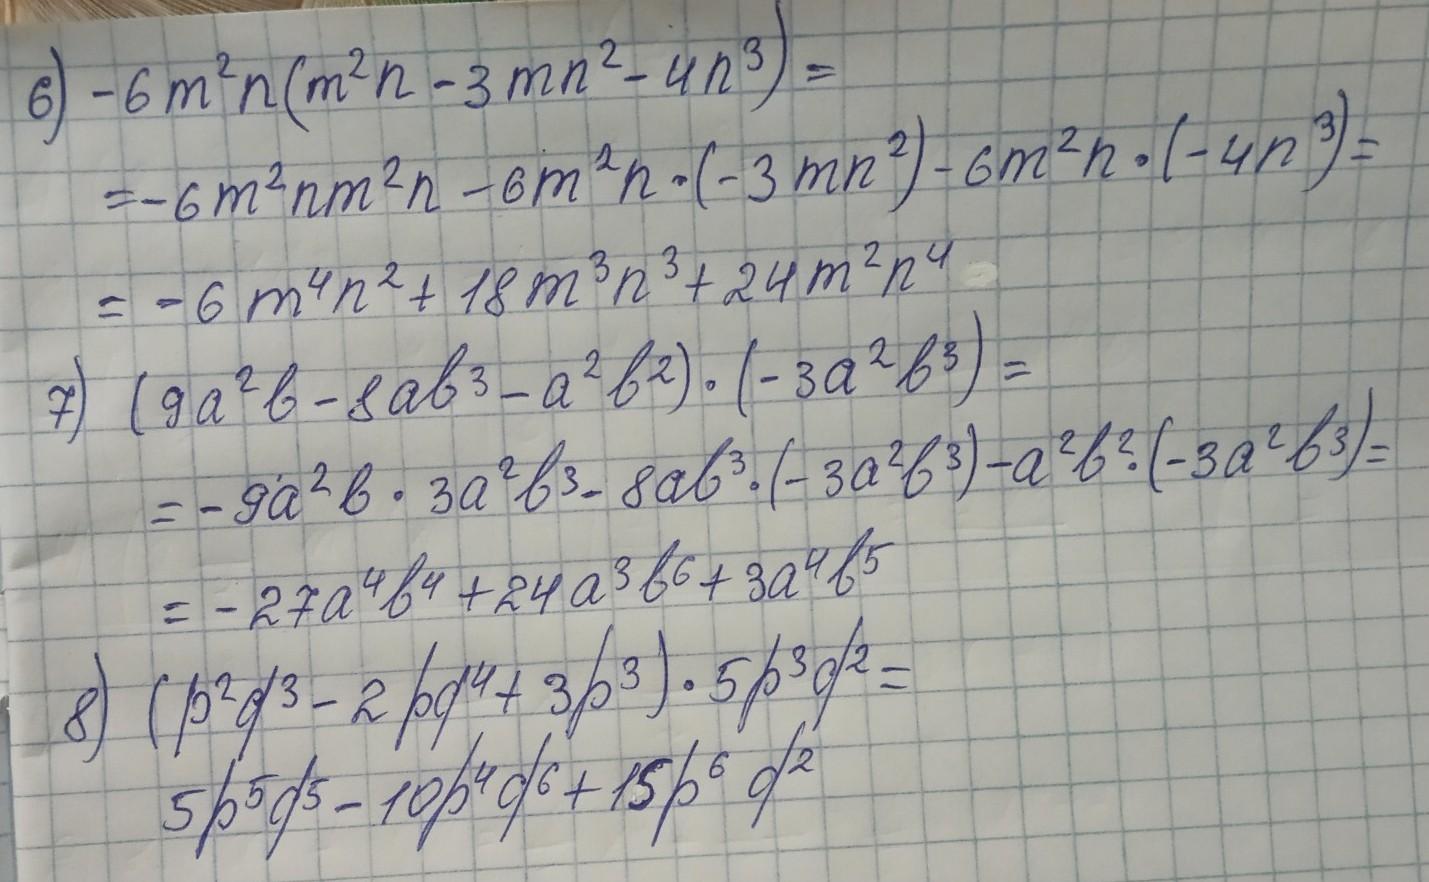 6) -6m²n(m²n - 3mn² - 4n³) =
= -6m²nm²n - 6m²n·(-3mn²) - 6m²n·(-4n³) =
= -6m⁴n² + 18m³n³ + 24m²n⁴
7) (9a²b - 8ab³ - a²b²)·(-3a²b³) =
= -9a²b · 3a²b³ - 8ab³·(-3a²b³) - a²b²·(-3a²b³) =
= -27a⁴b⁴ + 24a³b⁶ + 3a⁴b⁵
8) (p²q³ - 2pq⁴ + 3p³)·5p³q² =
5p⁵q⁵ - 10p⁴q⁶ + 15p⁶q²